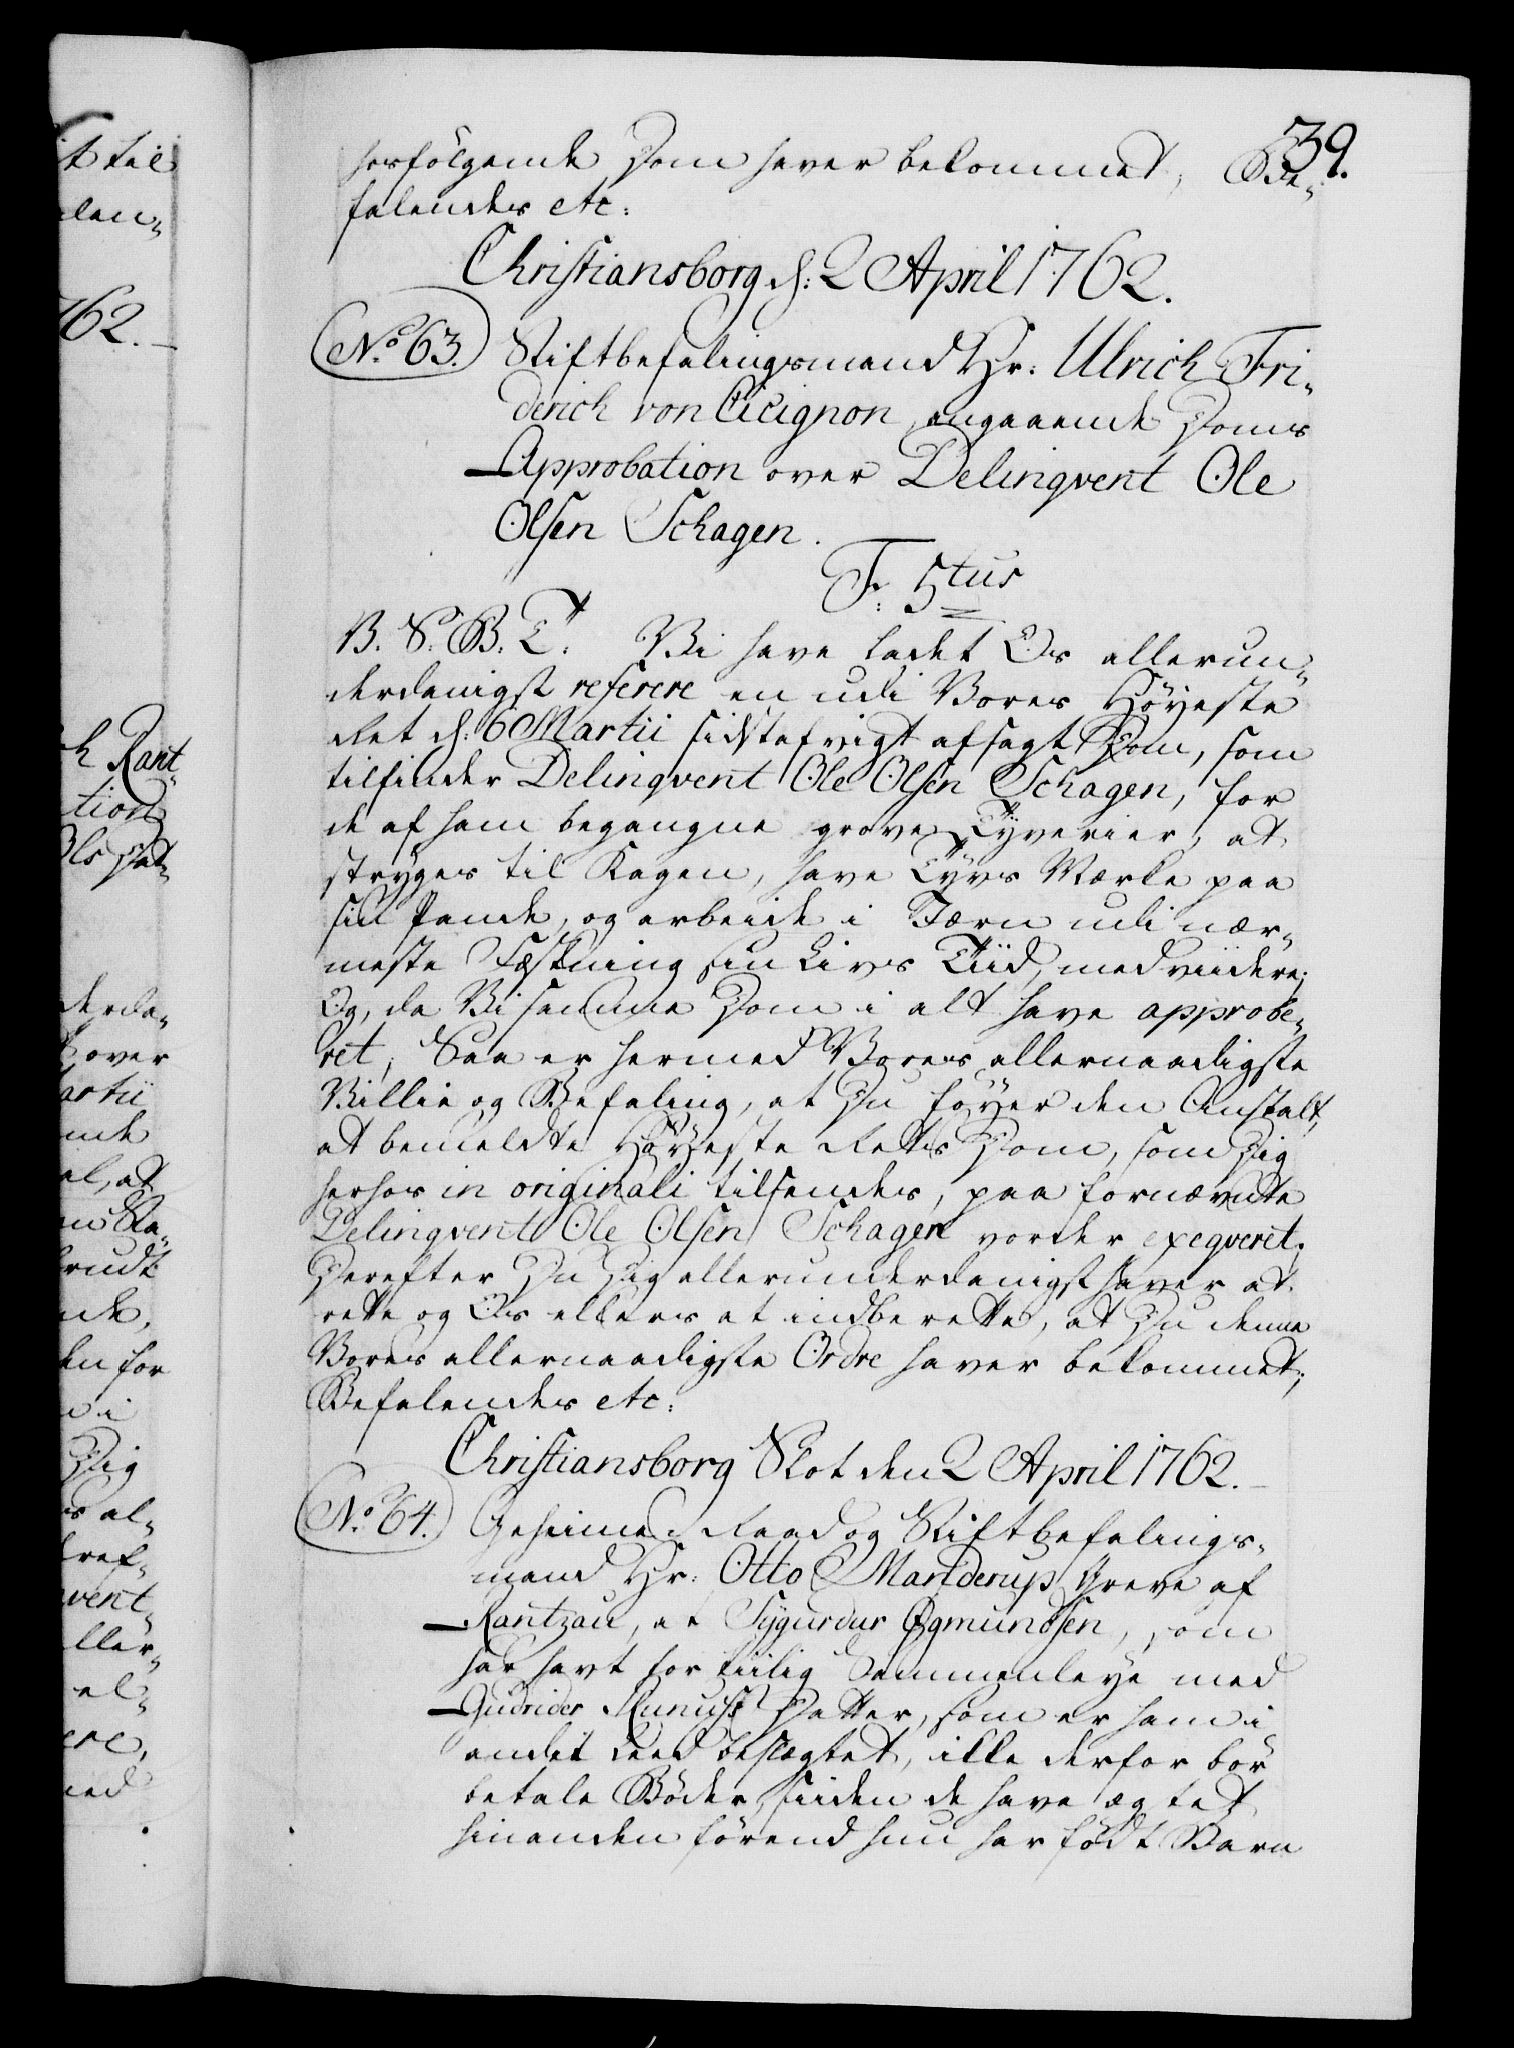 39.
hosfölgende Dom haver bekommet, Be-
falendes etc:
Christiansborg d: 2 April 1762.
No. 63. Stiftbefalingsmand Hr: Ulrich Fri-
derich von Cicignon, angaaende Doms
Approbation over Delinqvent Ole
Olsen Schagen.
F: 5tus
V. S. B. T. Vi have ladet Os allerun-
derdanigst referere en udi Vores Höyeste
Ret d: 6 Martii sidstafvigt afsagt Dom, som
tilfinder Delinqvent Ole Olsen Schagen, for
de af ham begangne grove Tyverier, at
stryges til Kagen, have Tyvs Mærke paa
sin Pande, og arbeide i Jærn udi nær-
meste Fæstning sin Livs Tiid, med viidere;
Og, da Vi samme Dom i alt have approbe-
ret, Saa er hermed Vores allernaadigste
Villie og Befaling, at Du föyer den Anstalt,
at bemeldte Höyeste Rettes Dom, som Dig
herhos in originali tilsendes, paa fornævnte
Delinqvent Ole Olsen Schagen vorder exeqveret;
Derefter Du Dig allerunderdanigst haver at
rette og Os ellers at indberette, at Du denne
Vores allernaadigste Ordre haver bekommet;
Befalendes etc:
Christiansborg Slot den 2 April 1762.
No. 64. Geheime-Raad og Stiftbefalings-
mand Hr: Otto Manderup Greve af
Rantzau, at Sygurdur Øgmundsen, som
har havt for tiilig Sammenleye med
Gudrider Datter, som er ham i
andet Leed beslægtet, ikke derfor bör
betale Böder, siiden de have ægtet
hinanden förend hun har födt Barn
it til
alen-
762.
h Rant-
tion
Ols Dat-
derda-
over
artii
ende
el, at
rudt
nde,
den for
n i
Dig
es al-
tref-
vent-
ller-
el-
ere,
ned